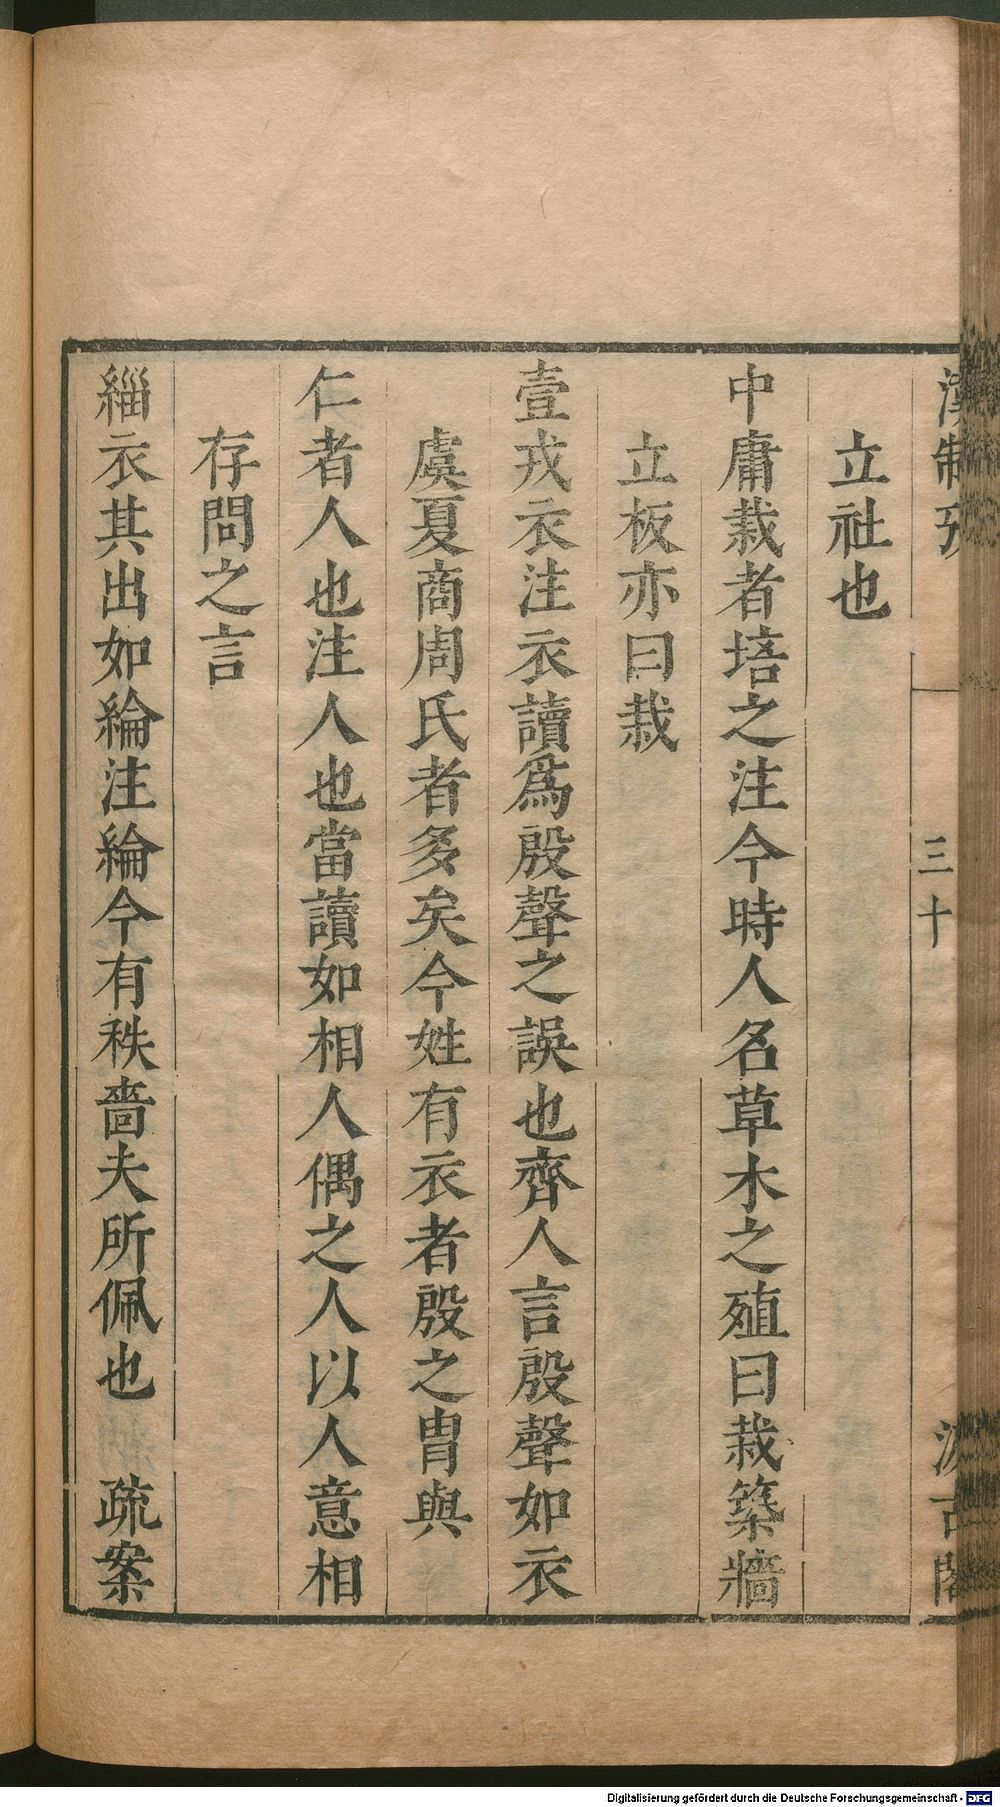 漢制攷
三十
汲古閣
立社也
中庸栽者培之注今時人名草木之殖曰栽築牆
立板亦曰栽
壹戎衣注衣讀爲殷聲之誤也齊人言殷聲如衣
虞夏商周氏者多矣今姓有衣者殷之冑與
仁者人也注人也當讀如相人偶之人以人意相
存問之言
緇衣其出如綸注綸今有秩嗇夫所佩也 疏案
Digitalisierung gefördert durch die Deutsche Forschungsgemeinschaft - DFG